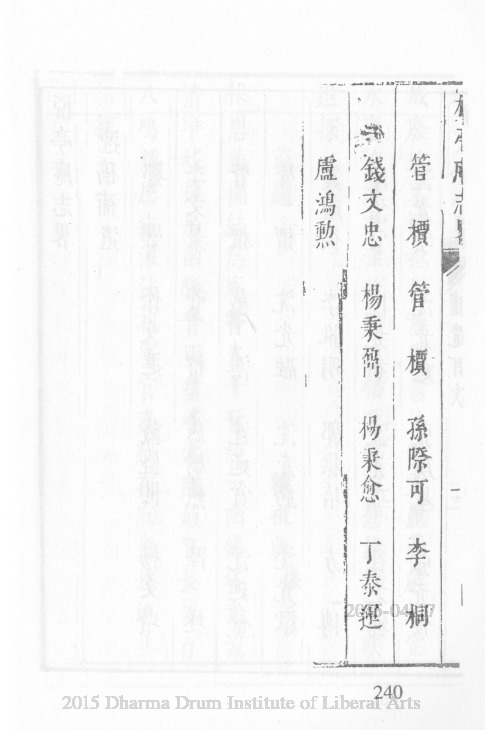 管櫝 管櫝 孫際可 李桐
錢文忠 楊秉 楊秉愈 丁泰運
盧鴻勲
240
2015 Dharma Drum Institute of Liberal Arts